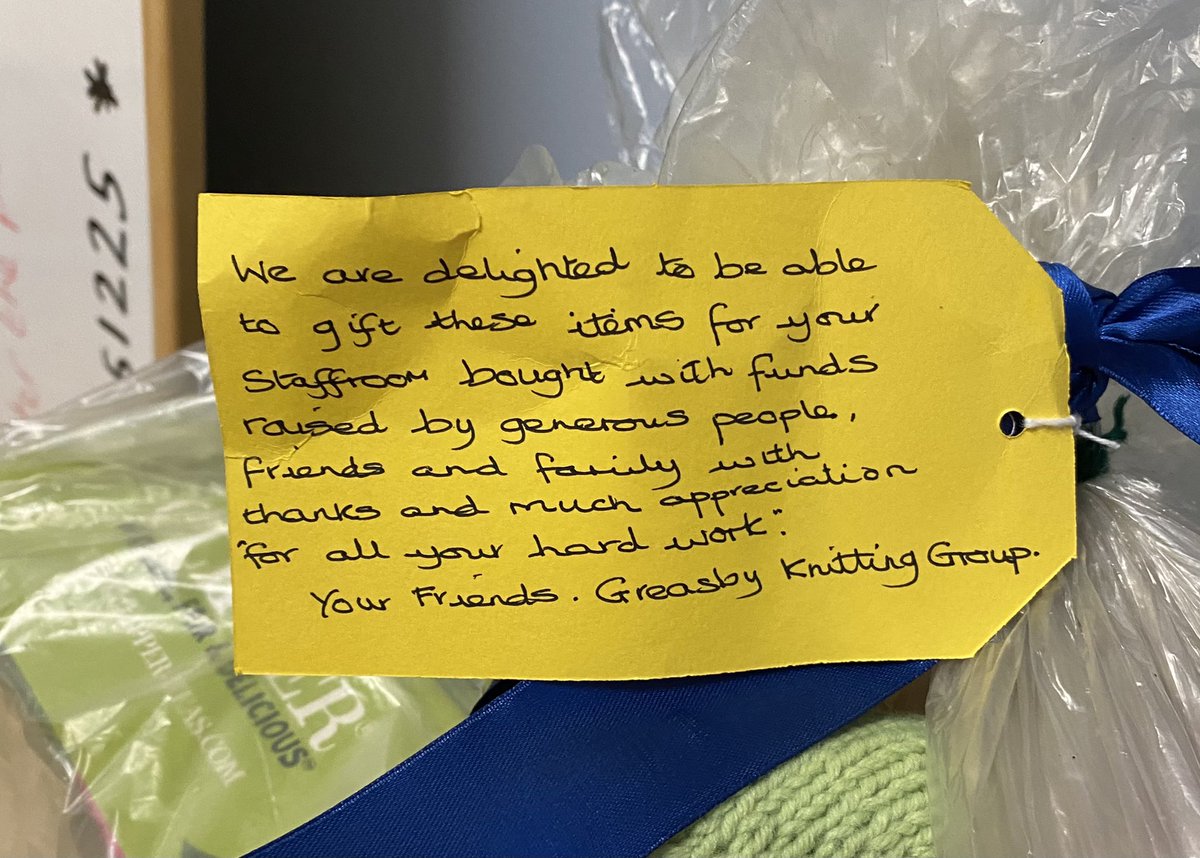 We are delighted to be able
to gift these items for your
Staffroom bought with funds
raised by generous people,
friends and family with
thanks and much appreciation
"for all your hard work".
Your Friends. Greasby Knitting Group.
51225 *
DELICIOUS™